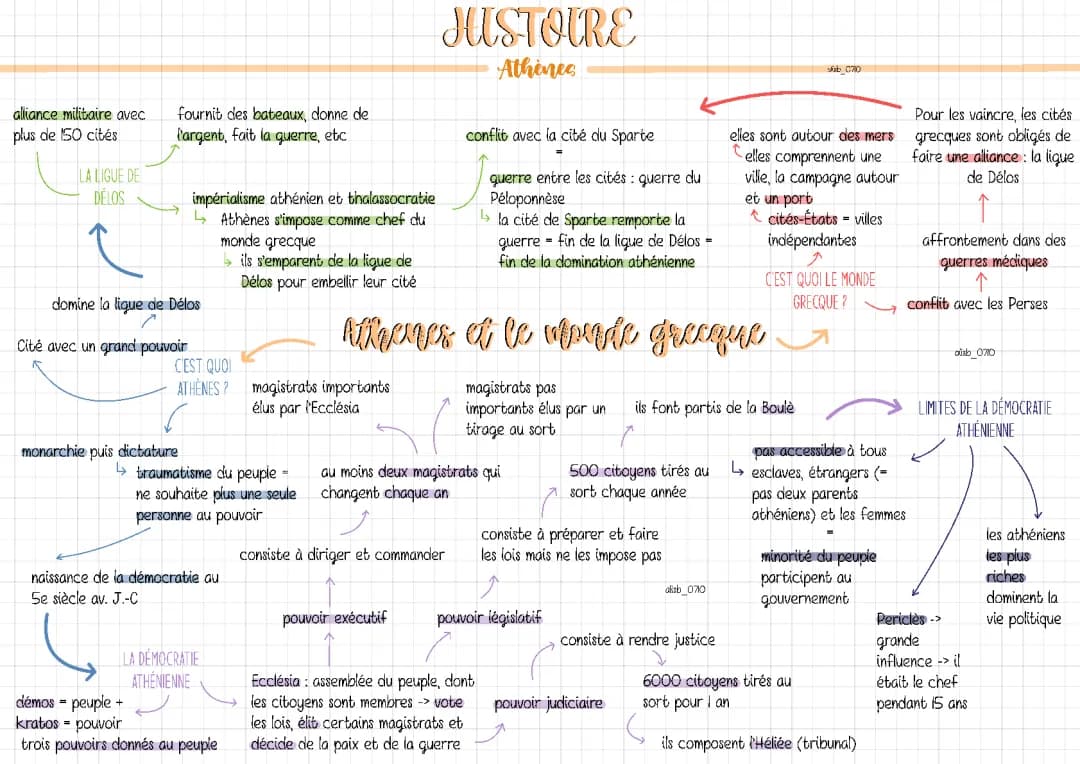 HISTOIRE
Athènes
alisb_0710
alliance militaire avec
plus de 150 cités
fournit des bateaux, donne de
l'argent, fait la guerre, etc
LA LIGUE DE
DÉLOS
impérialisme athénien et thalassocratie
Athènes s'impose comme chef du
monde grecque
ils s'emparent de la ligue de
Délos pour embellir leur cité
conflit avec la cité du Sparte
=
guerre entre les cités : guerre du
Péloponnèse
la cité de Sparte remporte la
guerre = fin de la ligue de Délos =
fin de la domination athénienne
elles sont autour des mers
elles comprennent une
ville, la campagne autour
et un port
cités-États = villes
indépendantes
C'EST QUOI LE MONDE
GRECQUE ?
Pour les vaincre, les cités
grecques sont obligés de
faire une alliance : la ligue
de Délos
affrontement dans des
guerres médiques
conflit avec les Perses
alisb_0710
Athènes et le monde grecque
domine la ligue de Délos
Cité avec un grand pouvoir
C'EST QUOI
ATHÈNES ?
monarchie puis dictature
traumatisme du peuple =
ne souhaite plus une seule
personne au pouvoir
naissance de la démocratie au
5e siècle av. J.-C
LA DÉMOCRATIE
ATHÉNIENNE
démos = peuple +
kratos = pouvoir
trois pouvoirs donnés au peuple
magistrats importants
élus par l'Ecclésia
magistrats pas
importants élus par un
tirage au sort
au moins deux magistrats qui
changent chaque an
consiste à diriger et commander
pouvoir exécutif
Ecclésia : assemblée du peuple, dont
les citoyens sont membres -> vote
les lois, élit certains magistrats et
décide de la paix et de la guerre
ils font partis de la Boulè
500 citoyens tirés au
sort chaque année
consiste à préparer et faire
les lois mais ne les impose pas
alisb_0710
pouvoir législatif
consiste à rendre justice
pouvoir judiciaire
6000 citoyens tirés au
sort pour 1 an
ils composent l'Héliée (tribunal)
LIMITES DE LA DÉMOCRATIE
ATHÉNIENNE
pas accessible à tous
esclaves, étrangers (=
pas deux parents
athéniens) et les femmes
=
minorité du peuple
participent au
gouvernement
Periclès ->
grande
influence -> il
était le chef
pendant 15 ans
les athéniens
les plus
riches
dominent la
vie politique